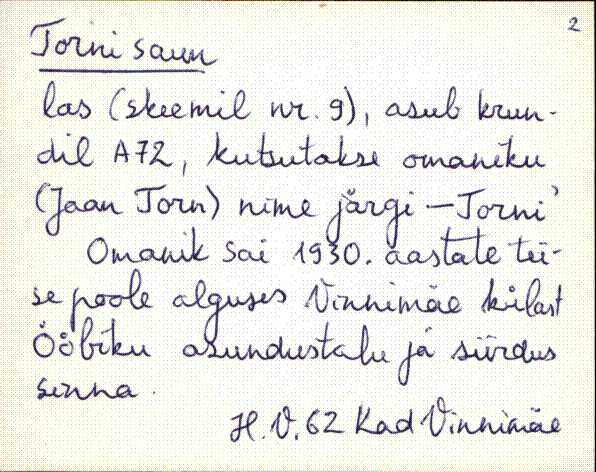 2
Torni saun
las (skeemil nr. 9), asub krun-
dil A72, kutsutakse omaniku
(Jaan Torn) nime järgi – Torni'
Omanik sai 1930. aastate tei-
se poole alguses Vinnimäe külast
Ööbiku asundustalu ja siirdus
sinna.
H.V. 62 Kad Vinnimäe